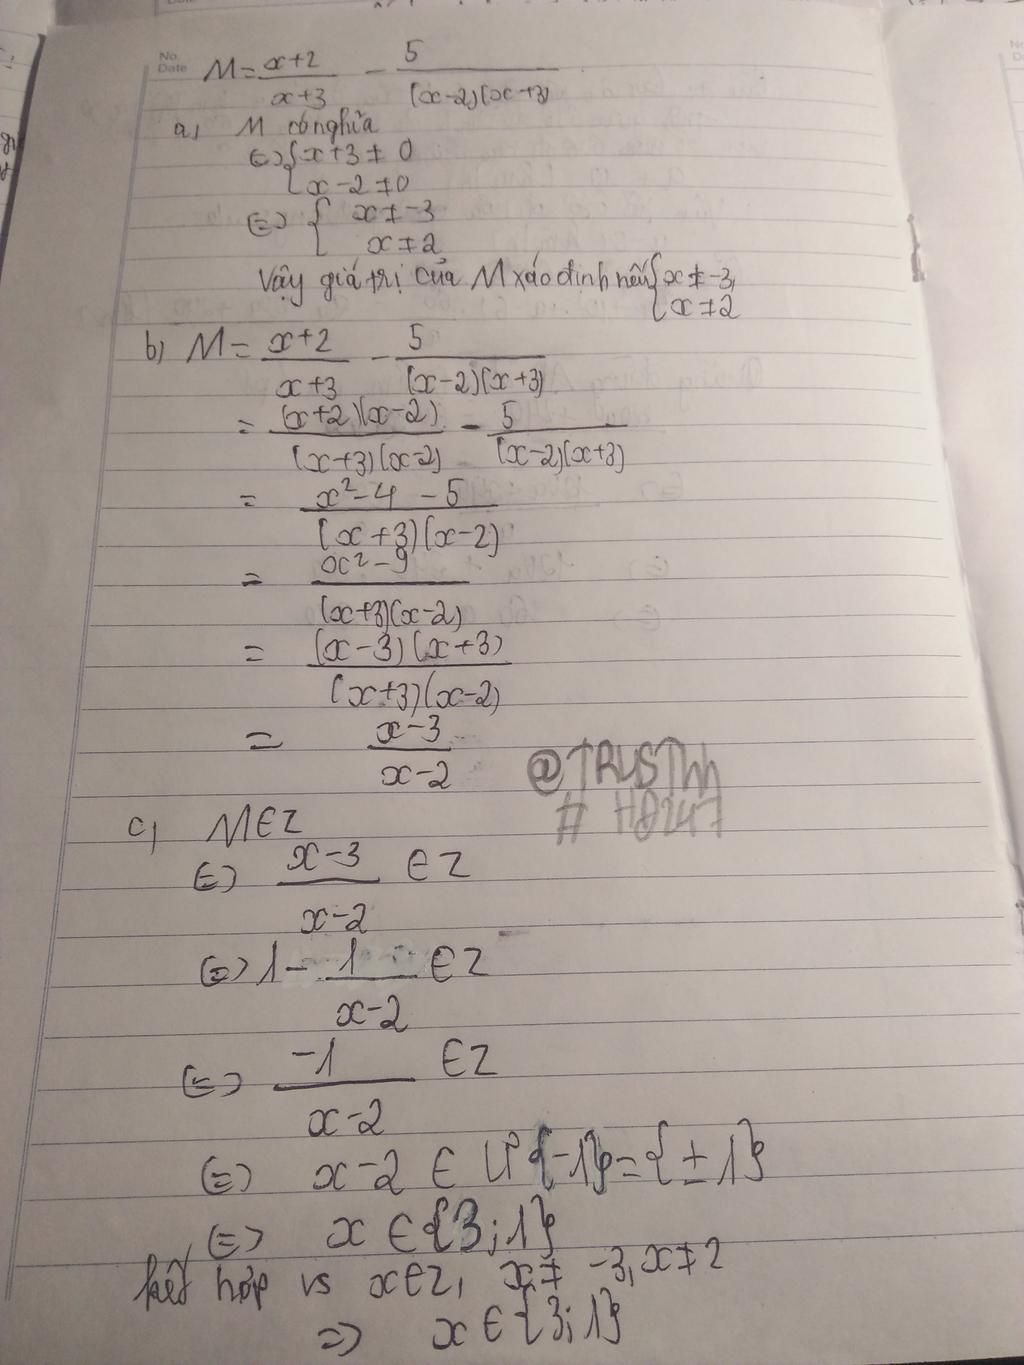 No.
Date
M = x+2/x+3 - 5/(x-2)(x+3)
a, M có nghĩa
(=) { x+3 ≠ 0
x-2 ≠ 0
(=) { x ≠ -3
x ≠ 2
Vậy giá trị của M xác định nếu { x ≠ -3,
x ≠ 2
b, M = x+2/x+3 - 5/(x-2)(x+3)
= (x+2)(x-2)/(x+3)(x-2) - 5/(x-2)(x+3)
= x²-4-5/(x+3)(x-2)
= x²-9/(x+3)(x-2)
= (x-3)(x+3)/(x+3)(x-2)
= x-3/x-2
@TRUSTnh
# HD247
c, M ∈ Z
(=) x-3/x-2 ∈ Z
(=) 1 - 1/x-2 ∈ Z
(=) -1/x-2 ∈ Z
(=) x-2 ∈ Ư{-1} = {±1}
(=) x ∈ {3;1}
kết hợp vs x∈Z, x ≠ -3, x ≠ 2
=) x ∈ {3;1}